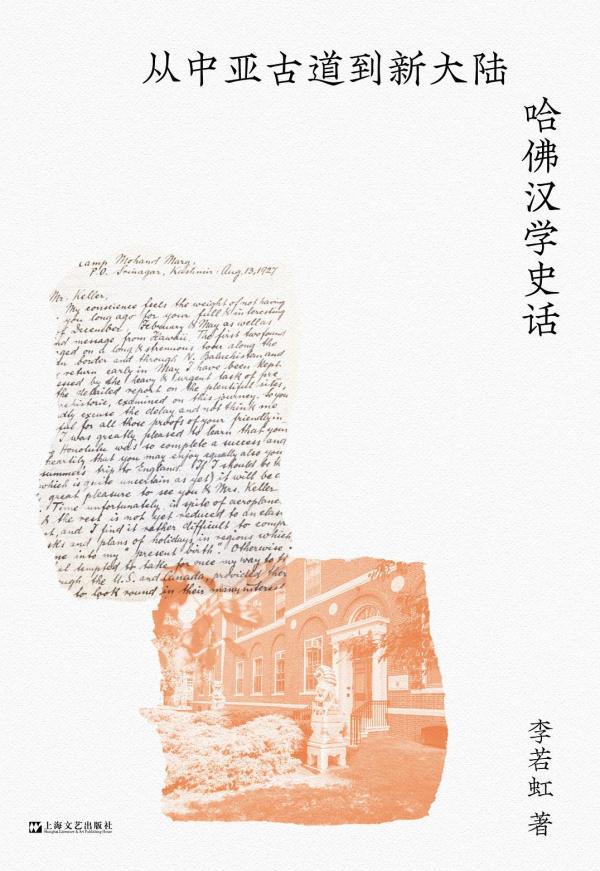 从中亚古道到新大陆
哈佛汉学史话
Camp Mohand Marg,
P.O. Srinagar, Kashmir. Aug. 13, 1927
Mr. Keller,
My conscience feels the weight of not having
you long ago for your full & interesting
of December, February & May as well as
message from Hawaii. The first two found
on a long & strenuous tour along the
border and through N. Baluchistan and
return early in May I have been kept
by the heavy & urgent task of
the detailed report on the plentiful sites,
prehistoric, examined on this journey. So you
excuse the delay and not think me
for all those proofs of your friendly in
I was greatly pleased to learn that your
Honolulu was so complete a success and
heartily that you may enjoy equally also your
summer's trip to England. If I should be
which is quite uncertain as yet) it will be a
great pleasure to see you & Mrs. Keller
Time unfortunately, in spite of aeroplane
& the rest is not yet reduced to an elas
and I find it rather difficult to comp
and plans of holidays in regions which
me into my "present birth". Otherwise
tempted to take for once my way to
the U.S. and Canada, provided
to look round in their many interest
李若虹 著
上海文艺出版社
Shanghai Literature & Art Publishing House